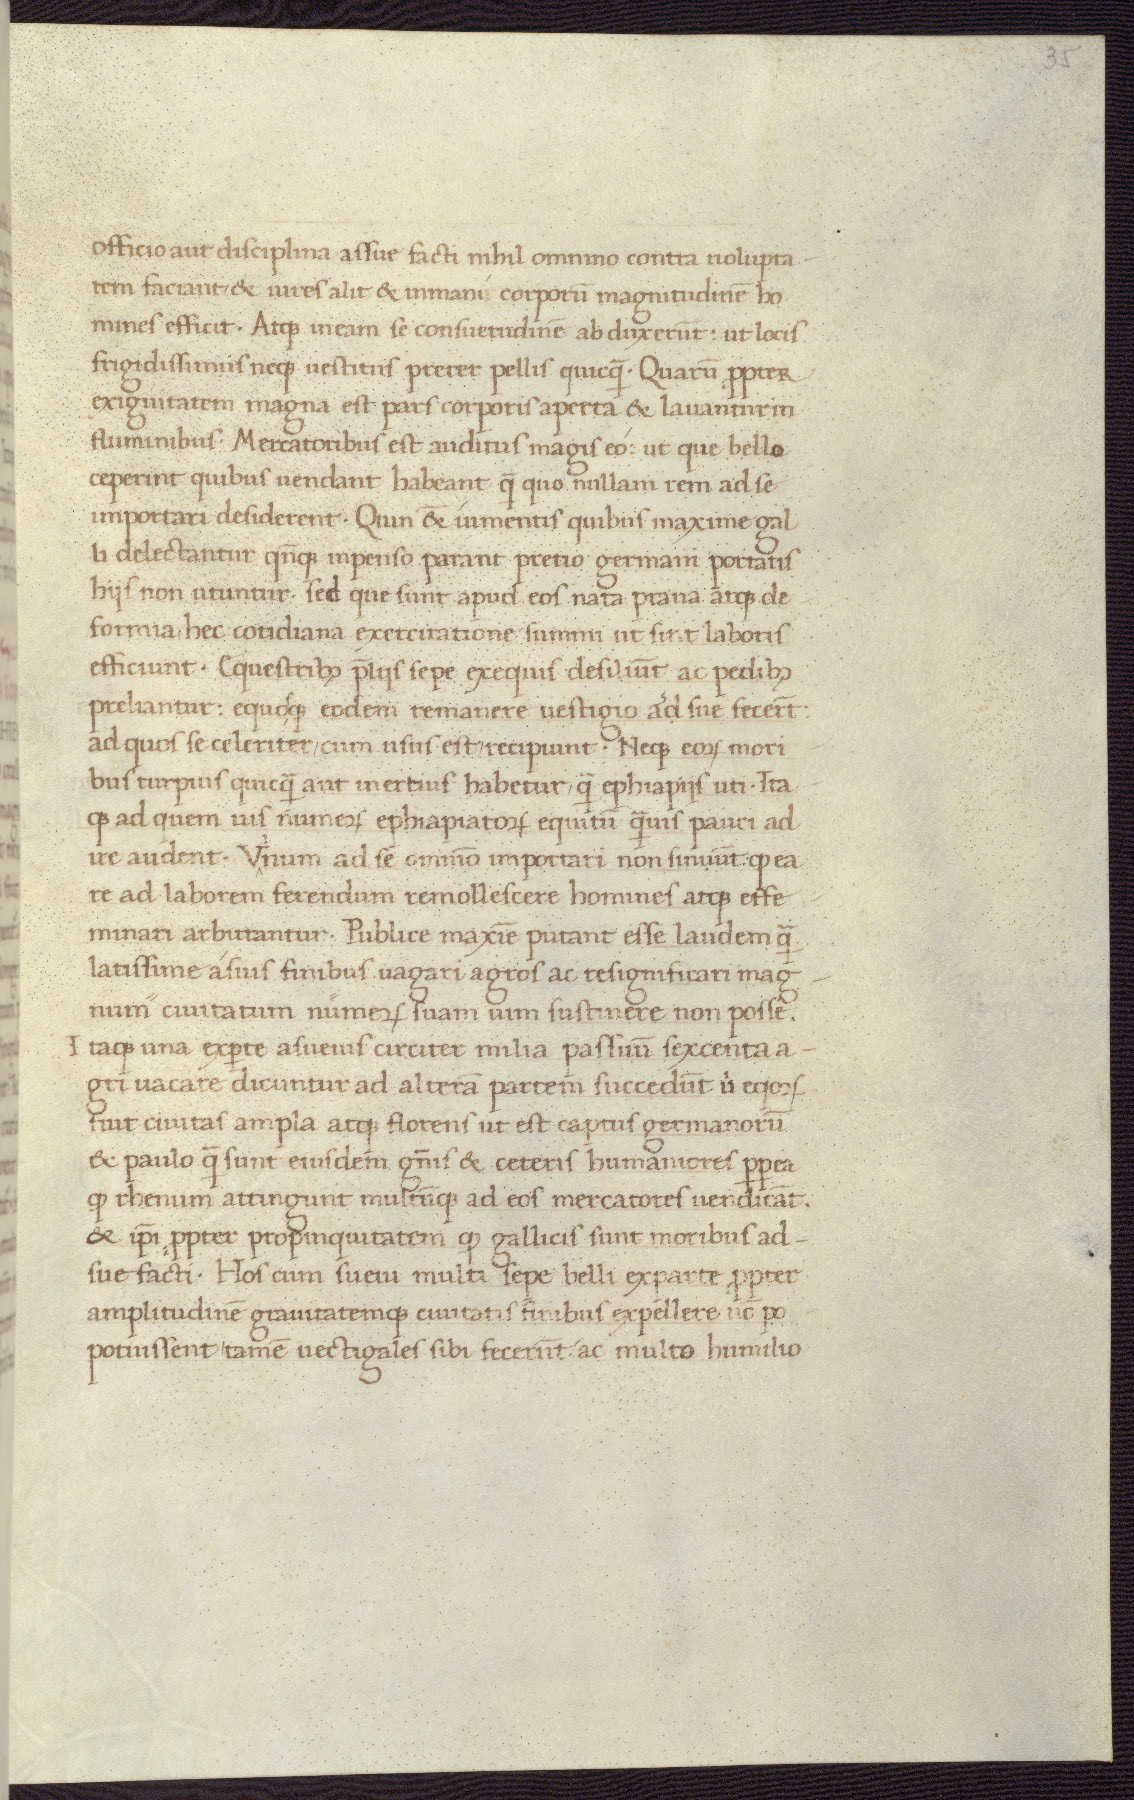 35
officio aut disciplina assue facti nihil omnino contra uolupta-
tem faciant/ & uires alit & inmani corporū magnitudinē ho
mines efficit. Atqꝫ ineam se consuetudinē ab duxerūt: ut locis
frigidissimis neqꝫ uestitus preter pellis quicq̄. Quarū ꝓpter
exiguitatem magna est pars corporis aperta & lauantur in
fluminibus. Mercatoribus est auditus magis eo: ut que bello
ceperint quibus uendant habeant q̄ quo nullam rem ad se
importari desiderent. Quin & iumentis quibus maxime gal
li delectantur qn̄qꝫ inpenso parant pretio germani portatis
hijs non utuntur. sed que sunt apud eos nata praua atqꝫ de
formia/ hec cotidiana exercitatione summi ut sint laboris
efficiunt. Equestribꝫ p̄lijs sepe exequis desiliūt ac pedibꝫ
preliantur: equosqꝫ eodem remanere uestigio ad sue fecer̄t:
ad quos se celeriter/ cum usus est/ recipiunt. Neqꝫ eoꝝ mori
bus turpius quicq̄ aut inertius habetur/ q̄ ephiapijs uti. Ita
qꝫ ad quem uis numeꝝ ephiapiatoꝝ equitū q̄uis pauci ad
ire audent. Vinum ad se omnīo importari non sinūt: ꝙ ea
re ad laborem ferendum remollescere homines atqꝫ effe
minari arbitrantur. Publice maxīe putant esse laudem q̄
latissime asuis finibus uagari agros ac resignificari mag-
num ciuitatum numeꝝ suam uim sustinere non posse.
Itaqꝫ una exꝑte asueuis circiter milia passuū sexcenta a-
gri uacare dicuntur ad alterā partem succedūt u̇ eqoꝝ
fuit ciuitas ampla atqꝫ florens ut est captus germanorū
& paulo q̄ sunt eiusdem gn̄is & ceteris humaniores ꝓpea
ꝙ rhenum attingunt multūqꝫ ad eos mercatores uendicāt.
& ip̄i ꝓpter propinquitatem ꝙ gallicis sunt moribus ad-
sue facti. Hos cum sueui multi sepe belli exparte ꝓpter
amplitudinē grauitatemqꝫ ciuitatis finibus expellere nō po
potuissent/ tamē uectigales sibi fecerūt: ac multo humilio